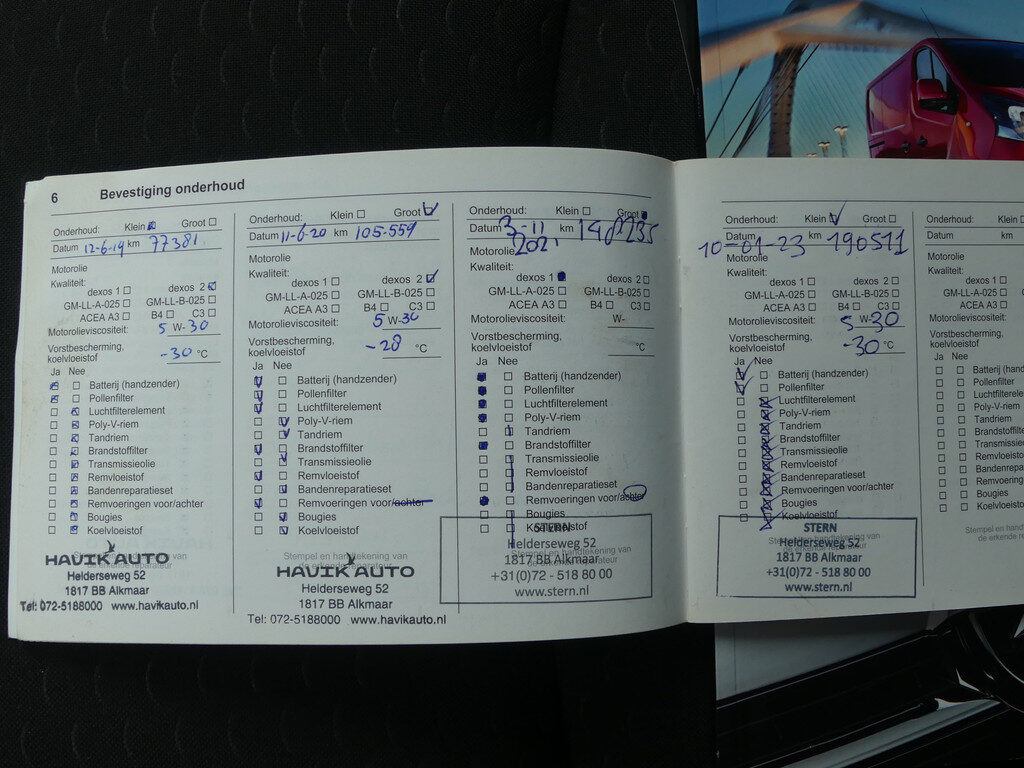 6 Bevestiging onderhoud
Onderhoud: Klein Groot
Datum 12-6-19 km 77381
Motorolie
Kwaliteit:
dexos 1 dexos 2
GM-LL-A-025 GM-LL-B-025
ACEA A3 B4 C3
Motorolieviscositeit: 5 W-30
Vorstbescherming,
koelvloeistof -30 °C
Ja Nee
Batterij (handzender)
Pollenfilter
Luchtfilterelement
Poly-V-riem
Tandriem
Brandstoffilter
Transmissieolie
Remvloeistof
Bandenreparatieset
Remvoeringen voor/achter
Bougies
Koelvloeistof
HAVIK AUTO
Helderseweg 52
1817 BB Alkmaar
Tel: 072-5188000 www.havikauto.nl
Onderhoud: Klein Groot
Datum 11-6-20 km 105-559
Motorolie
Kwaliteit:
dexos 1 dexos 2
GM-LL-A-025 GM-LL-B-025
ACEA A3 B4 C3
Motorolieviscositeit: 5 W-30
Vorstbescherming,
koelvloeistof -28 °C
Ja Nee
Batterij (handzender)
Pollenfilter
Luchtfilterelement
Poly-V-riem
Tandriem
Brandstoffilter
Transmissieolie
Remvloeistof
Bandenreparatieset
Remvoeringen voor/achter
Bougies
Koelvloeistof
Stempel en handtekening van
de erkende reparateur
HAVIK AUTO
Helderseweg 52
1817 BB Alkmaar
Tel: 072-5188000 www.havikauto.nl
Onderhoud: Klein Groot
Datum 3-11 km
2021
Motorolie
Kwaliteit:
dexos 1 dexos 2
GM-LL-A-025 GM-LL-B-025
ACEA A3 B4 C3
Motorolieviscositeit: W-
Vorstbescherming,
koelvloeistof °C
Ja Nee
Batterij (handzender)
Pollenfilter
Luchtfilterelement
Poly-V-riem
Tandriem
Brandstoffilter
Transmissieolie
Remvloeistof
Bandenreparatieset
Remvoeringen voor/achter
Bougies
Koelvloeistof
Stempel en handtekening van
de erkende reparateur
STERN
Helderseweg 52
1817 BB Alkmaar
+31(0)72 - 518 80 00
www.stern.nl
Onderhoud: Klein Groot
Datum km
10-01-23 190511
Motorolie
Kwaliteit:
dexos 1 dexos 2
GM-LL-A-025 GM-LL-B-025
ACEA A3 B4 C3
Motorolieviscositeit: 5 W-30
Vorstbescherming,
koelvloeistof -30 °C
Ja Nee
Batterij (handzender)
Pollenfilter
Luchtfilterelement
Poly-V-riem
Tandriem
Brandstoffilter
Transmissieolie
Remvloeistof
Bandenreparatieset
Remvoeringen voor/achter
Bougies
Koelvloeistof
Stempel en handtekening van
de erkende reparateur
STERN
Helderseweg 52
1817 BB Alkmaar
+31(0)72 - 518 80 00
www.stern.nl
Onderhoud: Klein
Datum km
Motorolie
Kwaliteit:
dexos 1
GM-LL-A-025
ACEA A3
Motorolieviscositeit:
Vorstbescherming,
koelvloeistof
Ja Nee
Batterij (handz
Pollenfilter
Luchtfilterelem
Poly-V-riem
Tandriem
Brandstoffilter
Transmissieol
Remvloeistof
Bandenrepara
Remvoeringen
Bougies
Koelvloeistof
Stempel en handtek
de erkende repa